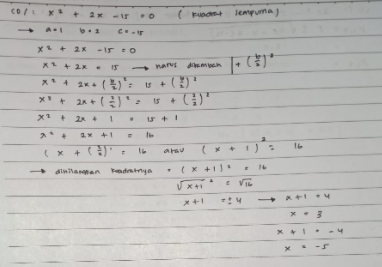 CO/: x² + 2x - 15 = 0 ( Kuadrat Sempurna)
→ a=1 b=2 c=-15
x² + 2x - 15 = 0
x² + 2x = 15 → harus ditambah + (b/2)²
x² + 2x + (b/2)² = 15 + (b/2)²
x² + 2x + (2/2)² = 15 + (2/2)²
x² + 2x + 1 = 15 + 1
x² + 2x + 1 = 16
(x + (2/2)² = 16 atau (x + 1)² = 16
→ dihilangkan kuadratnya = (x + 1)² = 16
√x+1² = √16
x+1 = ± 4 → x+1 = 4
x = 3
x + 1 = -4
x = -5